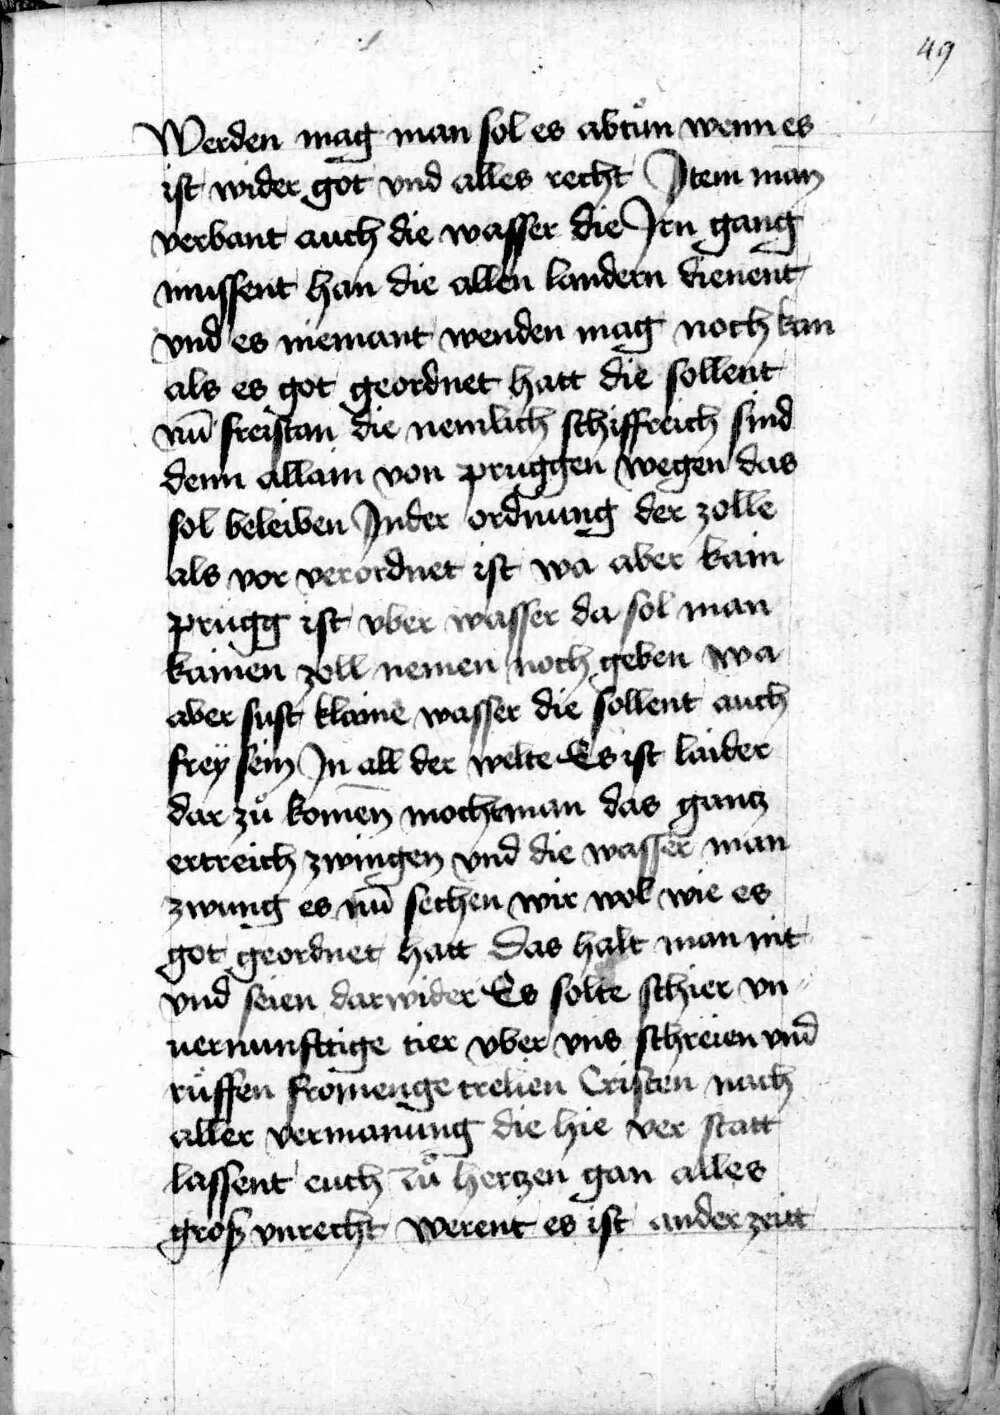 49
Werden mag man sol es abtuͦn wenn es
ist wider got vnd alles recht Item man
verbant auch die wasser die Irn gang
mussent han die allen landern dienent
vnd es niemant wenden mag noch kan
als es got geordnet hatt die sollent
nū freistan die nemlich schiffreich sind
denn allain von pruggen wegen das
sol beleiben Inder ordnung der zolle
als vor verordnet ist wa aber kain
prugg ist vber wasser da sol man
kainen zoll nemen noch geben wa
aber sust klaine wasser die sollent auch
frey sein In all der welte Es ist laider
dar zuͦ komen mocht man das gantz
ertreich zwingen vnd die wasser man
zwung es nū sechen wir wol wie es
got geordnet hatt Das halt man nit
vnd seien darwider Es solte schier vn
uernunfttige tier vber vns schreien vnd
ruͤffen fromenge treuen Cristen nach
aller vermanung die hie ver statt
lassent euch zuͦ hertzen gan alles
groß vnrecht werent es ist ander zeitt